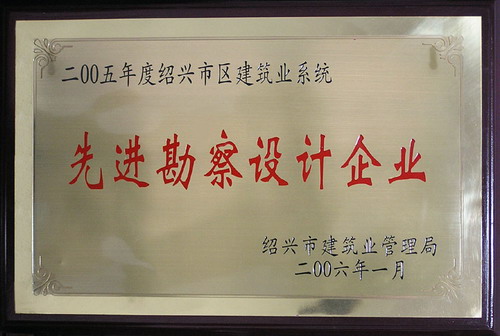 二00五年度绍兴市区建筑业系统
先进勘察设计企业
绍兴市建筑业管理局
二00六年一月